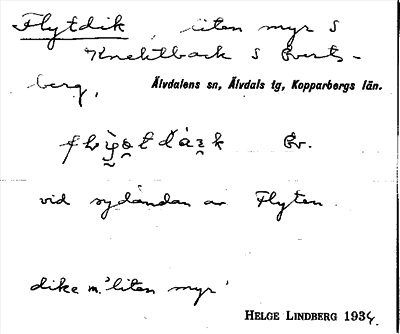 Flytdik, liten myr S
Knektback S Everts-
berg,
Älvdalens sn, Älvdals tg, Kopparbergs län.
Ev.
vid sydändan av Flyten.
dike m. 'liten myr'
HELGE LINDBERG 1934.